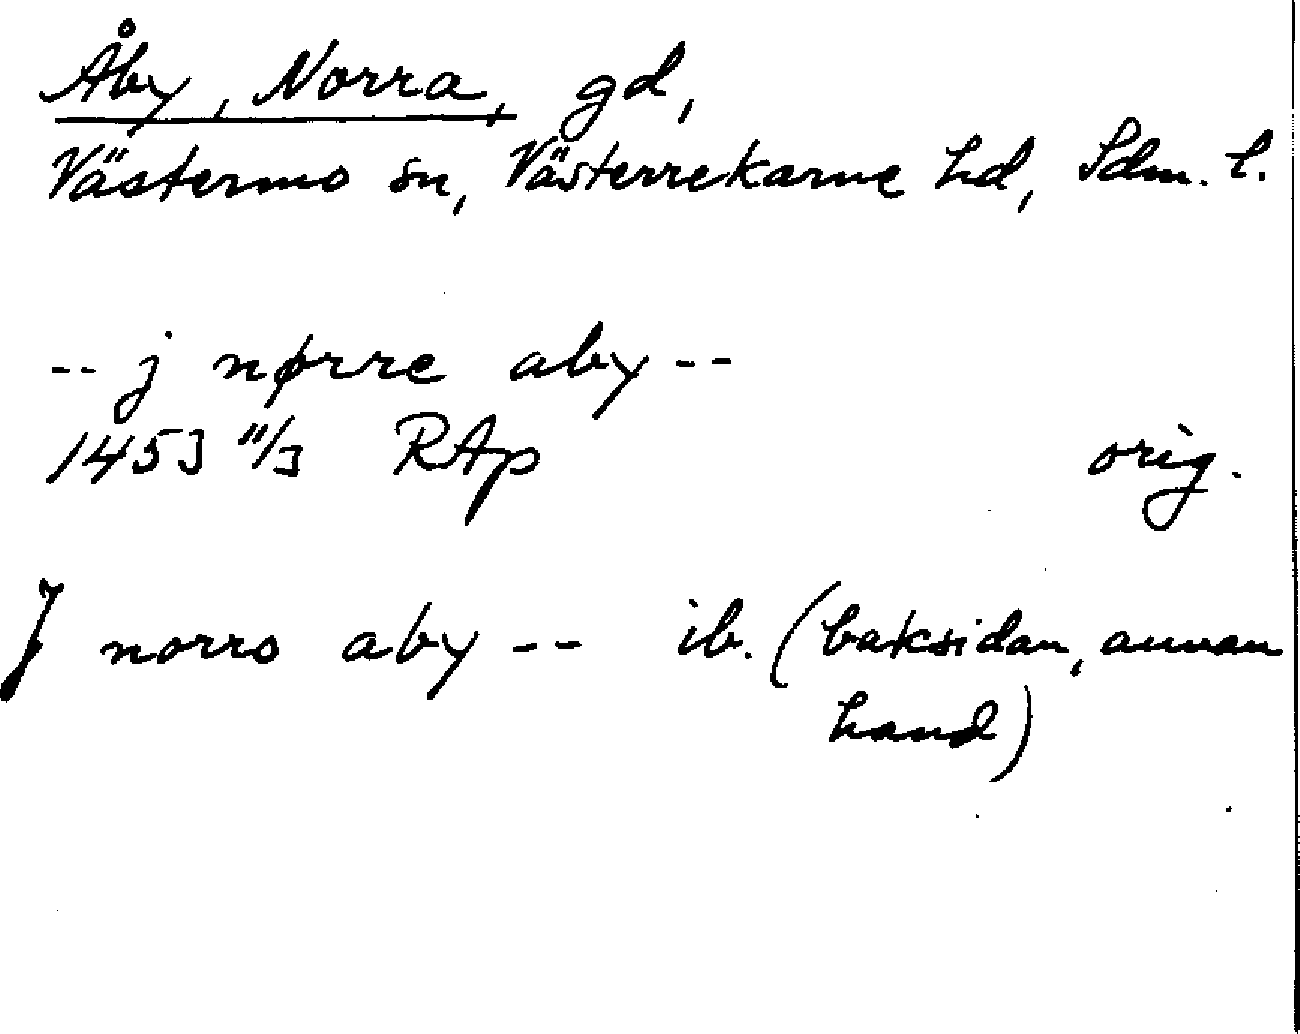 Åby, Norra, gd,
Västermo sn, Västerrekarne hd, Sdm. l.
-- j nørre aby --
1453 11/3 RAp orig.
J norro aby -- ib. (baksidan, annan
hand)